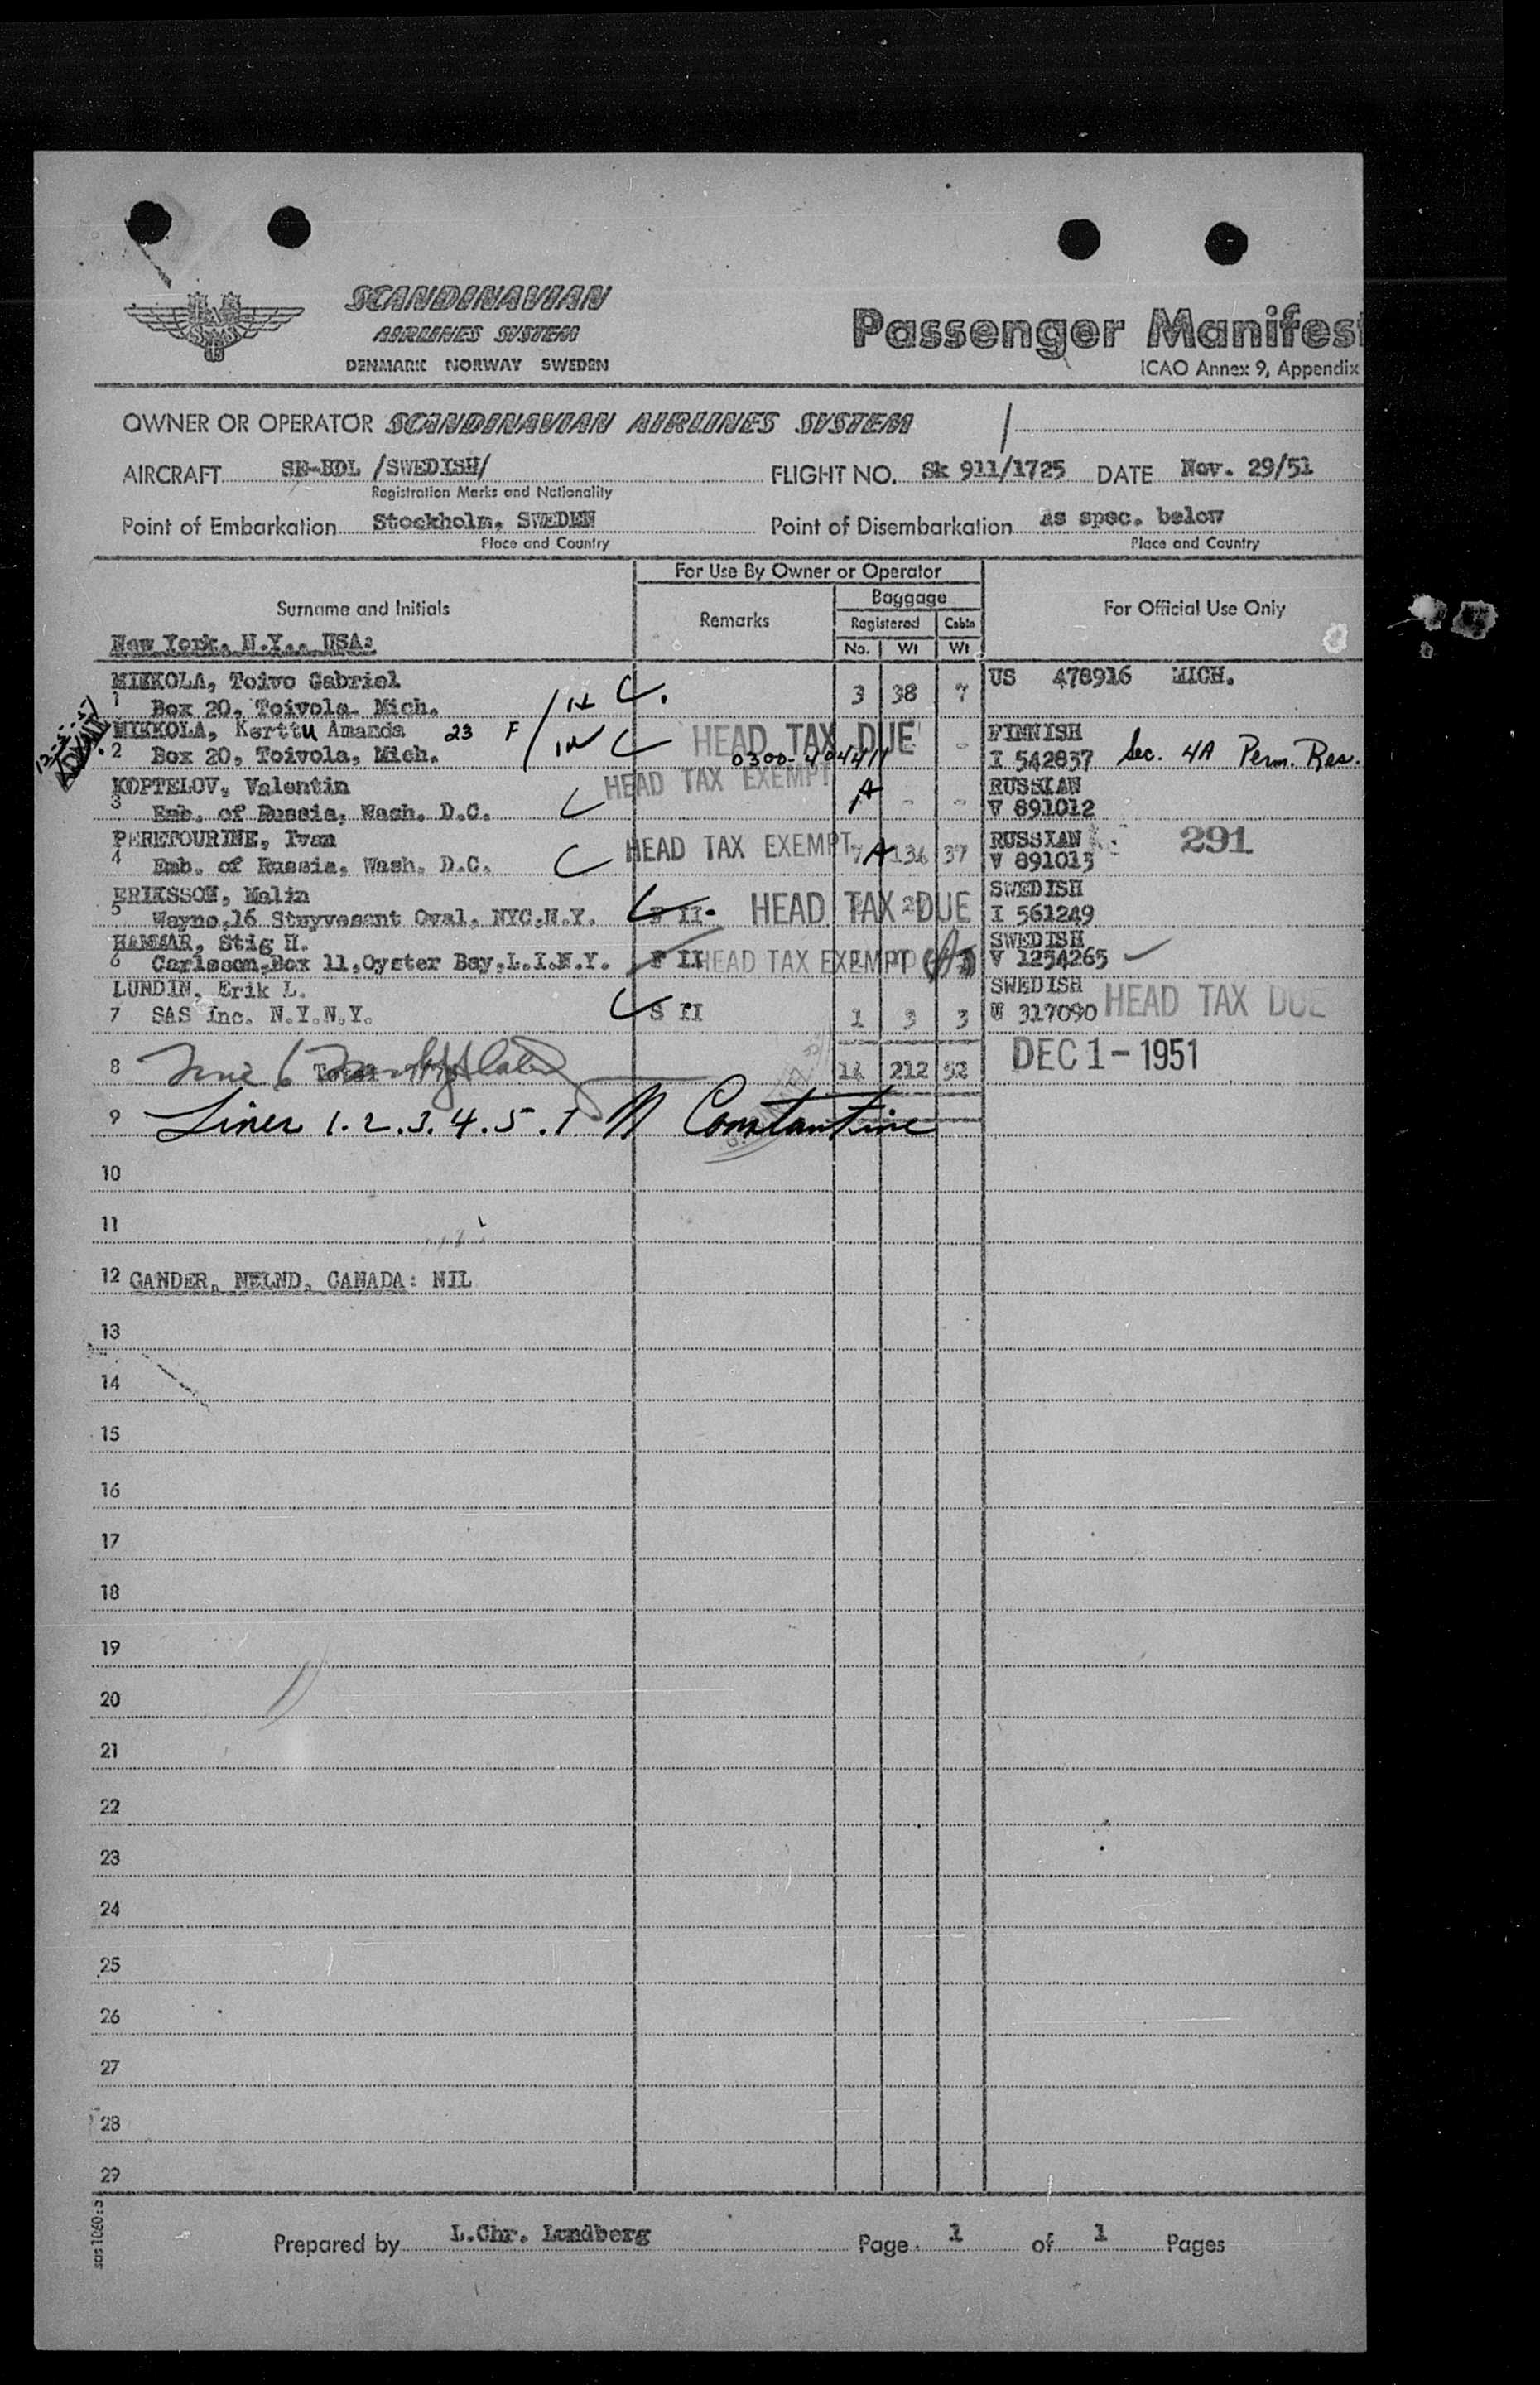 SCANDINAVIAN
AIRLINES SYSTEM
DENMARK NORWAY SWEDEN
Passenger Manifes
ICAO Annex 9, Appendix
OWNER OR OPERATOR SCANDINAVIAN AIRLINES SYSTEM
AIRCRAFT SE-BDL /SWEDISH/ FLIGHT NO. Sk 911/1725 DATE Nov. 29/51
Registration Marks and Nationality
Point of Embarkation Stockholm, SWEDEN Point of Disembarkation as spec. below
Place and Country Place and Country
For Use By Owner or Operator
Surname and Initials Remarks Baggage For Official Use Only
Registered Cabin
No. Wt Wt
New York, N.Y., USA:
MIKKOLA, Toivo Gabriel US 478916 MICH.
1 Box 20, Toivola. Mich. 3 38 7
MIKKOLA, Kerttu Amanda 23 F HEAD TAX DUE - FINNISH
2 Box 20, Toivola, Mich. 0300-404411 I 542837 Sec. 4A Perm. Res.
KOPTELOV, Valentin HEAD TAX EXEMPT A RUSSIAN
3 Emb. of Russia, Wash. D.C. - - V 891012
PERETOURINE, Ivan HEAD TAX EXEMPT RUSSIAN 291
4 Emb. of Russia, Wash. D.C. 7 A 134 37 V 891013
ERIKSSON, Malin SWEDISH
5 Wayne,16 Stuyvesant Oval, NYC,N.Y. F II- HEAD TAX DUE I 561249
HAMMAR, Stig H. SWEDISH
6 Carlsson,Box 11,Oyster Bay,L.I.N.Y. F II HEAD TAX EXEMPT V 1254265
LUNDIN, Erik L. SWEDISH HEAD TAX DUE
7 SAS Inc. N.Y.N.Y. S II 1 3 3 317090
8 Total 212 52 DEC 1 - 1951
9 Lines 1.2.3.4.5.7 M Constantine
10
11
12 GANDER, NFLND, CANADA: NIL
13
14
15
16
17
18
19
20
21
22
23
24
25
26
27
28
29
sas 1060:5
Prepared by L.Chr. Lundberg Page 1 of 1 Pages